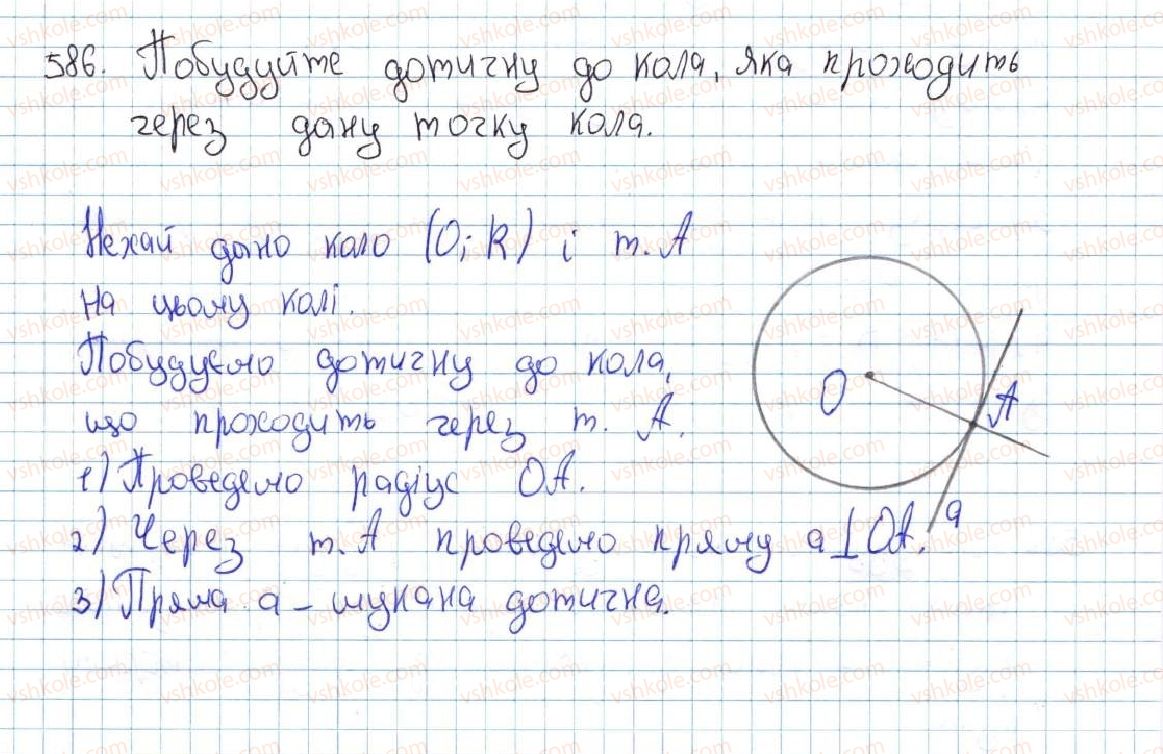 586. Побудуйте дотичну до кола, яка проходить
через дану точку кола.
Нехай дано коло (O; R) і т. A
на цьому колі.
Побудуємо дотичну до кола,
що проходить через т. A.
1) Проведемо радіус OA.
2) Через т. A проведемо пряму a⊥OA.
3) Пряма a – шукана дотична.
O
A
a
vshkole.com